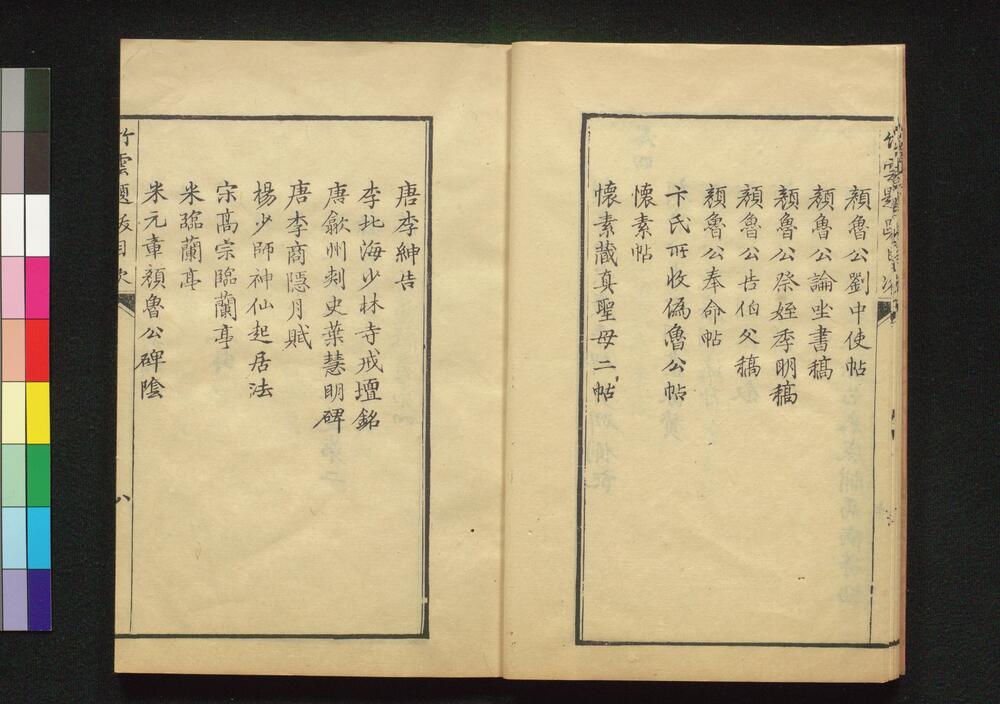 顏魯公劉中使帖
顏魯公論坐書稿
顏魯公祭姪季明稿
顏魯公告伯父稿
顏魯公奉命帖
卞氏所收偽魯公帖
懷素帖
懷素藏真聖母二帖
唐李紳告
李北海少林寺戒壇銘
唐歙州刾史葉慧明碑
唐李商隱月賦
楊少師神仙起居法
宋高宗臨蘭亭
米臨蘭亭
米元章顏魯公碑陰
竹雲題跋目次
八